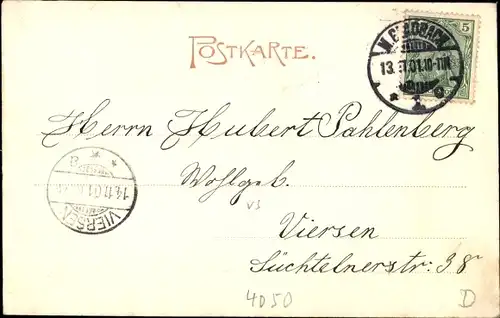 POSTKARTE.
5
M.GLADBACH
13. 01.10-11N
Herrn Hubert Pahlenberg
Wohlgeb.
vs
Viersen
Süchtelnerstr: 38
VIERSEN
4050
D